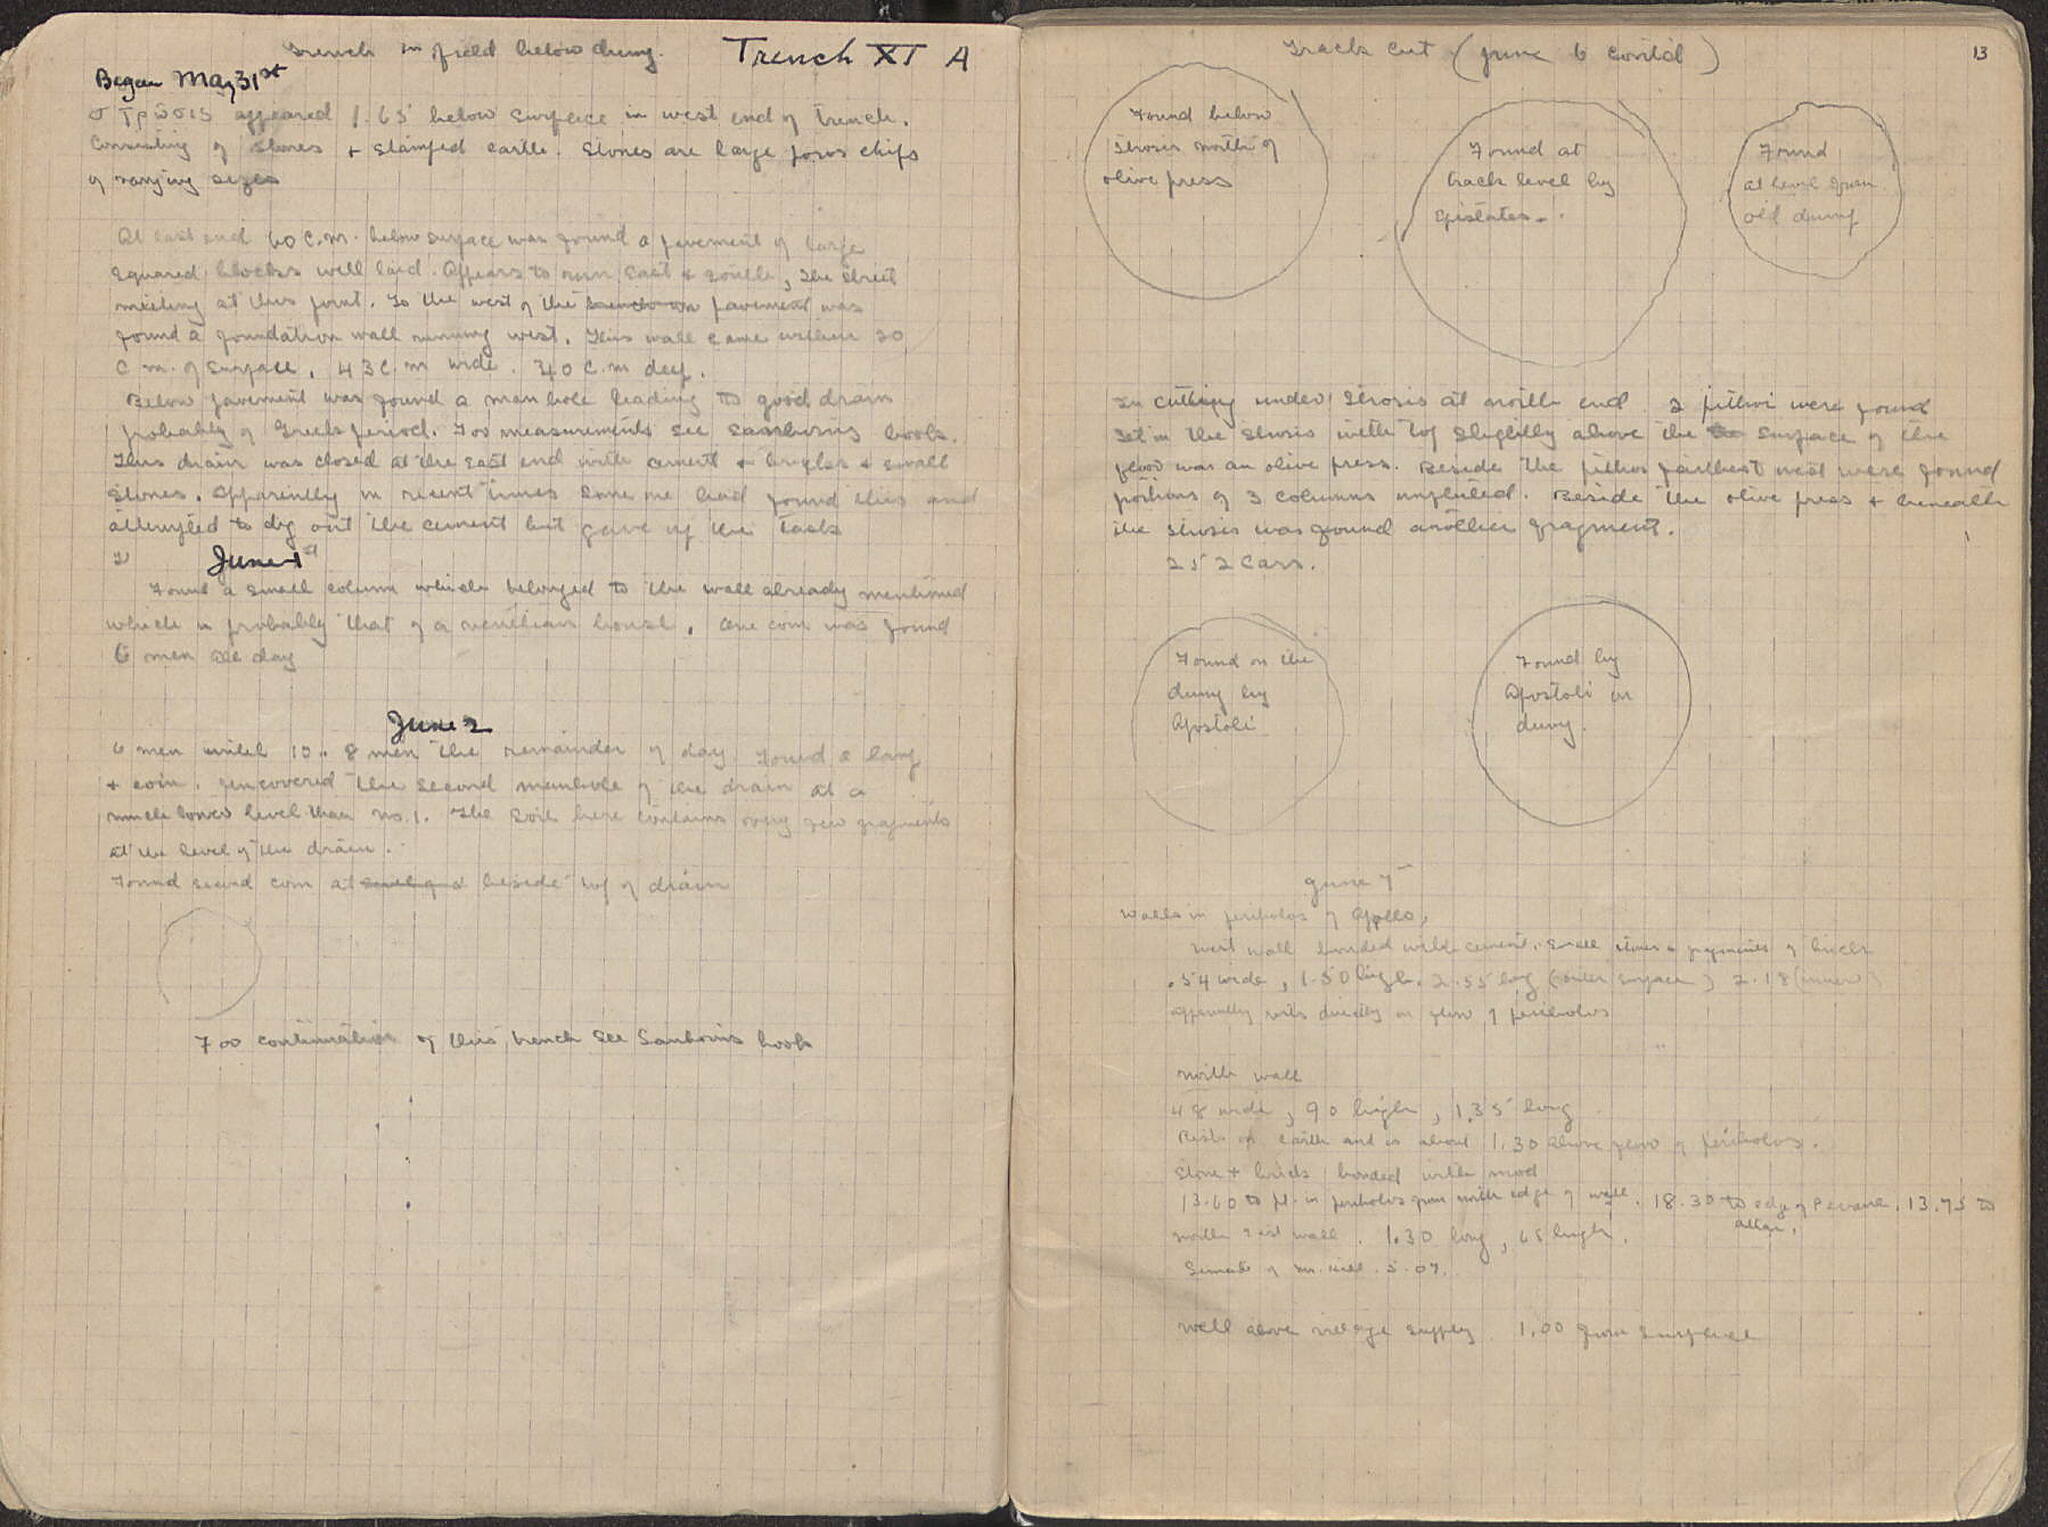 Trench in field below dump. Trench XI A
Began May 31st
στρῶσις appeared 1.65 below surface in west end of trench.
Consisting of stones + stamped earth. Stones are large poros chips
of varying sizes
At east end 60 c.m. below surface was found a pavement of large
squared blocks well laid. Appears to run East & South, the street
meeting at this point. To the west of the pavement was
found a foundation wall running west. This wall came within 20
c m. of surface. 43 c.m wide. 40 c.m deep.
Below pavement was found a man hole leading to good drain
probably of Greek period. For measurements see Sanborns book.
This drain was closed at the east end with cement + bricks + small
stones. Apparently in recent times some one had found this and
attempted to dig out the cement but gave up the task
June 1st
Found a small column which belonged to the wall already mentioned
which is probably that of a venetian house. One coin was found
6 men all day
June 2
6 men until 10. 8 men the remainder of day. Found a lamp
+ coin. Uncovered the second manhole of the drain at a
much lower level than no. 1. The soil here contains very few fragments
at the level of the drain.
Found second coin at beside top of drain
For continuation of this trench see Sanborns book
13
Track cut (June 6 contd)
Found below
strosis north of
olive press
Found at
track level by
Epistates.
Found
at level from
old dump
In cutting under strosis at north end 2 pithoi were found
set in the strosis with top slightly above the surface of the
floor was an olive press. Beside the pithos farthest west were found
portions of 3 columns unfluted. Beside the olive press + beneath
the strosis was found another fragment.
252 cars.
Found on the
dump by
Apostoli
Found by
Apostoli on
dump.
June 7
Walls in peribolos of Apollo,
West wall bonded with cement. Small stones + fragments of brick
.54 wide, 1.50 high. 2.55 long (outer surface) 2.18 (inner)
apparently rests directly on floor of peribolos
North wall
48 wide, 90 high, 1.35 long
Rests on earth and is about 1.30 above floor of peribolos.
Stone + bricks bonded with mud
13.60 to pt. in peribolos from north edge of wall. 18.30 to edge of Peirene. 13.75 to
altar.
North East wall. 1.30 long, 65 high.
of Mr. Hill. 5.07.
Well above village supply 1.00 from surface